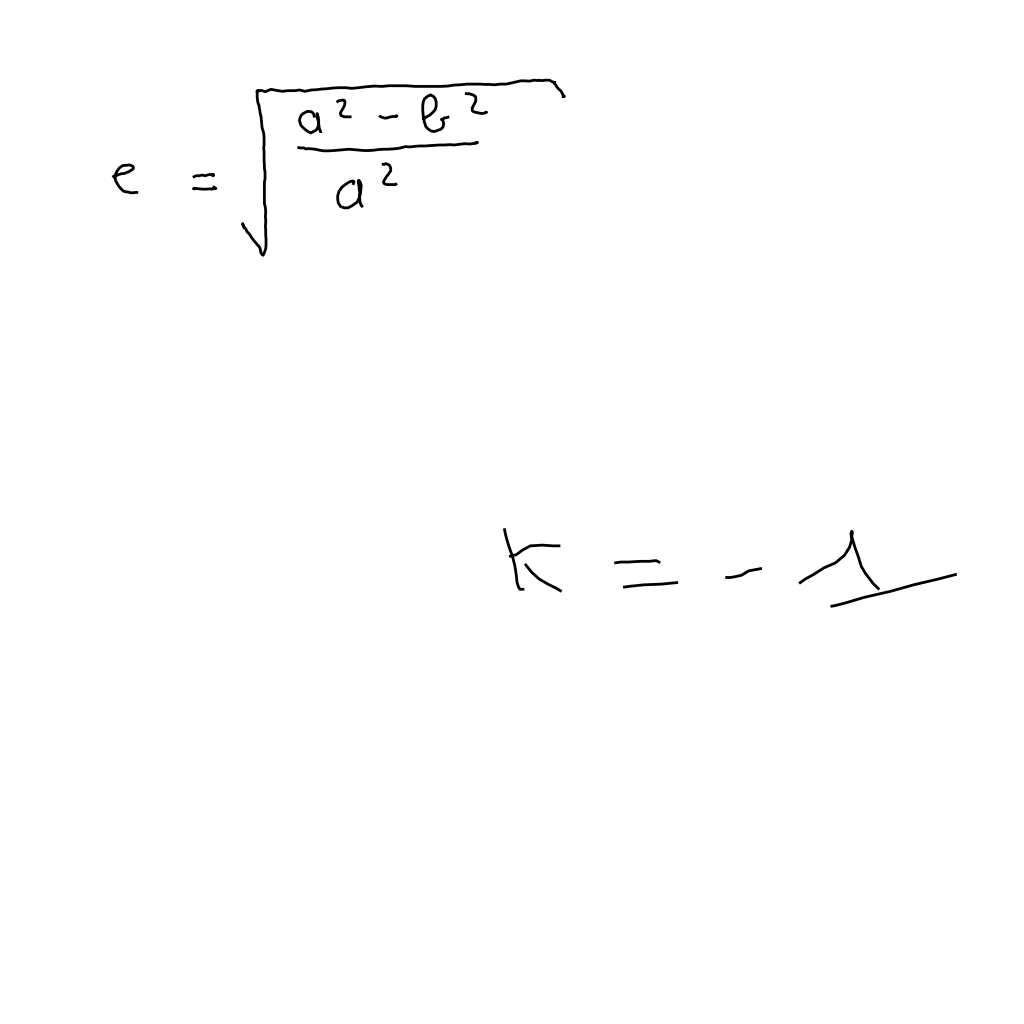 e = √((a² - b²)/a²)
K = - 1